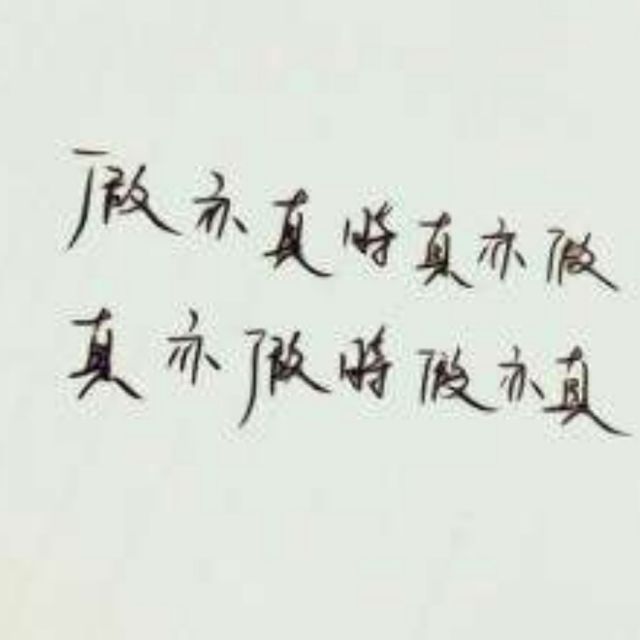 假亦真時真亦假
真亦假時假亦真